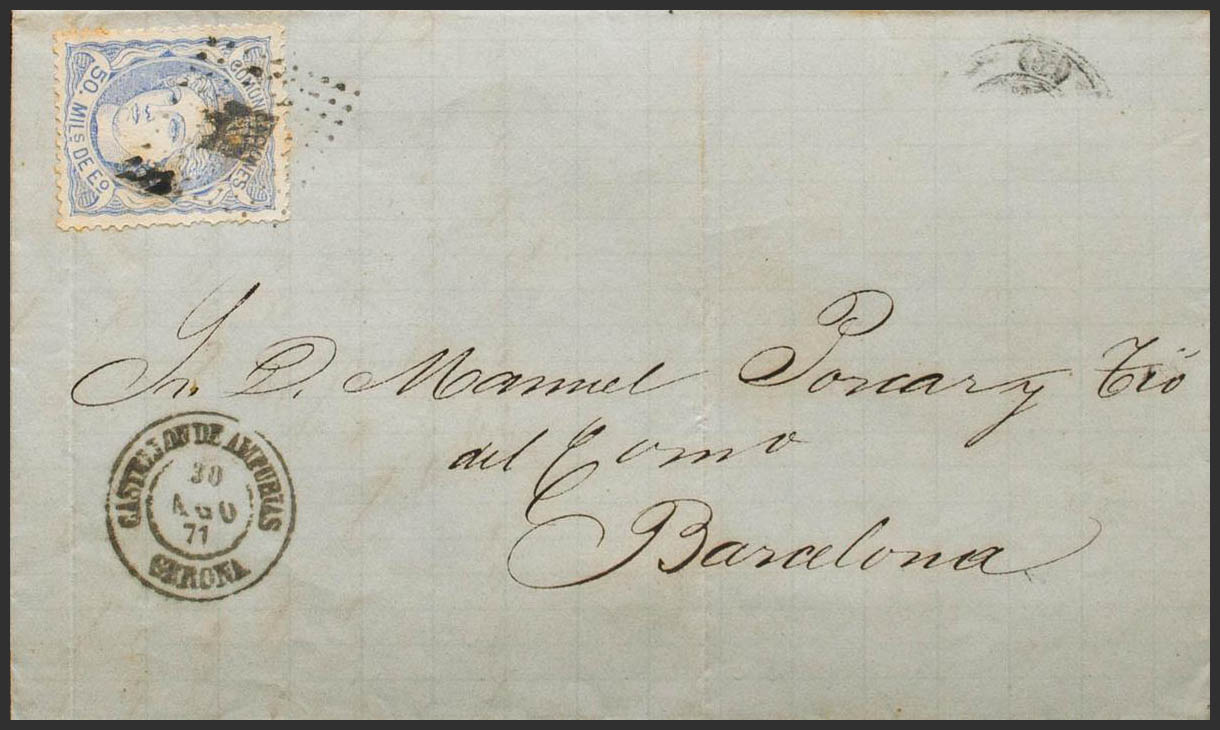 COMUNICACIONES.
50. MILs DE Eo.
Sr. D. Manuel Porcar y Tió
del Comº
Barcelona
CASTELLON DE AMPURIAS
30
AGO
71
GERONA